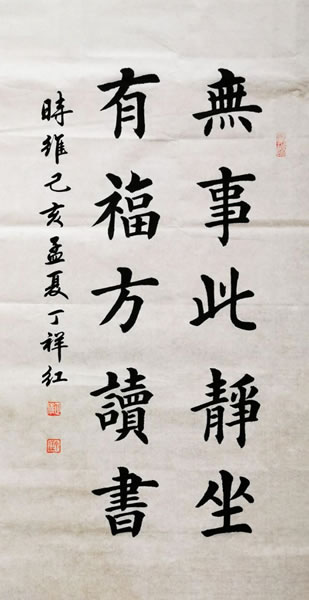 無事此靜坐
有福方讀書
時維己亥孟夏丁祥红